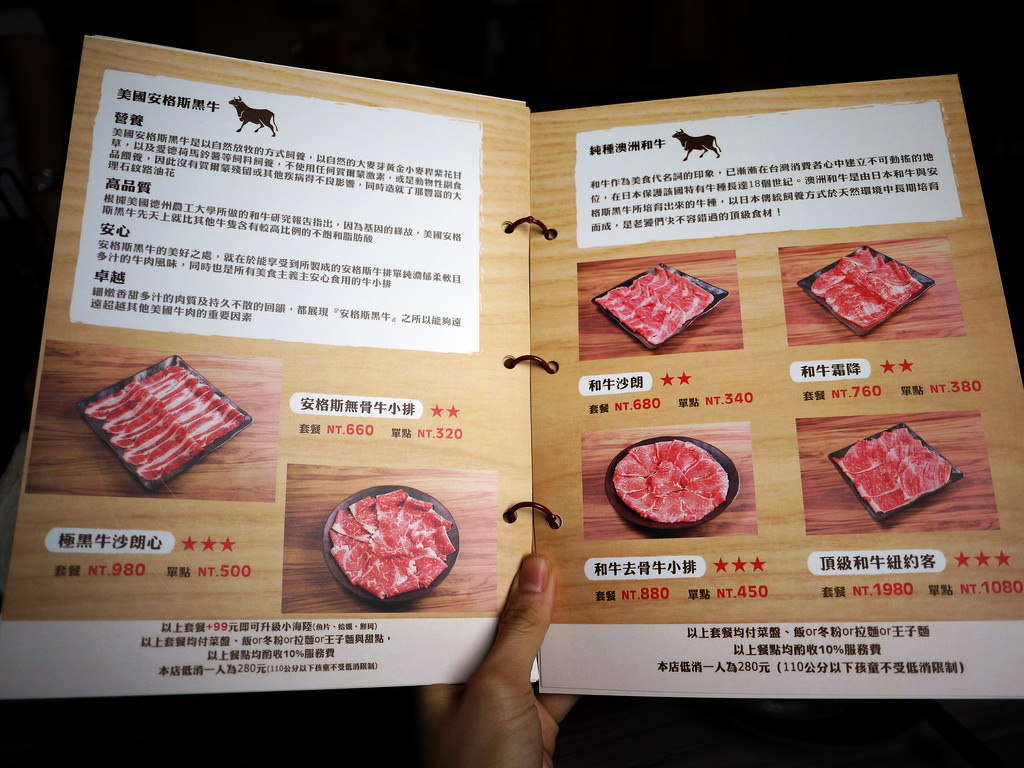 美國安格斯黑牛
營養
美國安格斯黑牛是以自然放牧的方式飼養，以自然的大麥芽黃金小麥稈紫花苜
草，以及愛德荷馬鈴薯等飼料飼養，不使用任何賀爾蒙激素，或是動物性副食
品餵養，因此沒有賀爾蒙殘留或其他疾病得不良影響，同時造就了那豐富的大
理石紋路油花
高品質
根據美國德州農工大學所做的和牛研究報告指出，因為基因的緣故，美國安格
斯黑牛先天上就比其他牛隻含有較高比例的不飽和脂肪酸
安心
安格斯黑牛的美好之處，就在於能享受到所製成的安格斯牛排單純濃郁柔軟且
多汁的牛肉風味，同時也是所有美食主義主安心食用的牛小排
卓越
細嫩香甜多汁的肉質及持久不散的回韻，都展現『安格斯黑牛』之所以能夠遠
遠超越其他美國牛肉的重要因素
安格斯無骨牛小排 ★★
套餐 NT.660 單點 NT.320
極黑牛沙朗心 ★★★
套餐 NT.980 單點 NT.500
以上套餐+99元即可升級小海陸(魚片、蛤蠣、鮮蚵)
以上套餐均付菜盤、飯or冬粉or拉麵or王子麵與甜點，
以上餐點均酌收10%服務費
本店低消一人為280元(110公分以下孩童不受低消限制)
純種澳洲和牛
和牛作為美食代名詞的印象，已漸漸在台灣消費者心中建立不可動搖的地
位，在日本保護該國特有牛種長達18個世紀。澳洲和牛是由日本和牛與安
格斯黑牛所培育出來的牛種，以日本傳統飼養方式於天然環境中長期培育
而成，是老饕們決不容錯過的頂級食材！
和牛沙朗 ★★
套餐 NT.680 單點 NT.340
和牛霜降 ★★
套餐 NT.760 單點 NT.380
和牛去骨牛小排 ★★★
套餐 NT.880 單點 NT.450
頂級和牛紐約客 ★★★
套餐 NT.1980 單點 NT.1080
以上套餐均付菜盤、飯or冬粉or拉麵or王子麵
以上餐點均酌收10%服務費
本店低消一人為280元（110公分以下孩童不受低消限制）